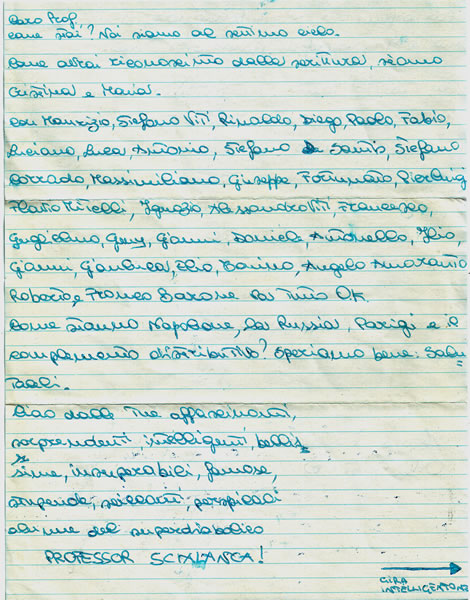 Caro Prof
come stai? Noi siamo al settimo cielo.
Come avrai riconosciuto dalla scrittura, siamo
Cristina e Maria.
Con Maurizio, Stefano Viti, Rinaldo, Diego, Paolo, Fabio,
Luciano, Luca, Antonio, Stefano Santis, Stefano
Corrado, Massimiliano, Giuseppe, Fortunato, Pierluigi
Flavio Mitelli, Ignazio, Alessandro Viti, Francesco,
Guglielmo, Geny, Gianni, Daniele Antonello, Ilio,
Gianni, Gianluca, Elio, Angelo Amaranto
Roberto, e Franco Barone va tutto OK.
Come stanno Napoleone, la Russia, Parigi e il
complemento distributivo? Speriamo bene: Salu-
tali.
Ciao dalle tue affascinanti,
sorprendenti, intelligenti, bellis-
sime, insuperabili, famose,
stupende, perspicaci
alunne del superdiabolico
PROFESSOR SCIALANGA!
GIRA
INTELLIGENTONE